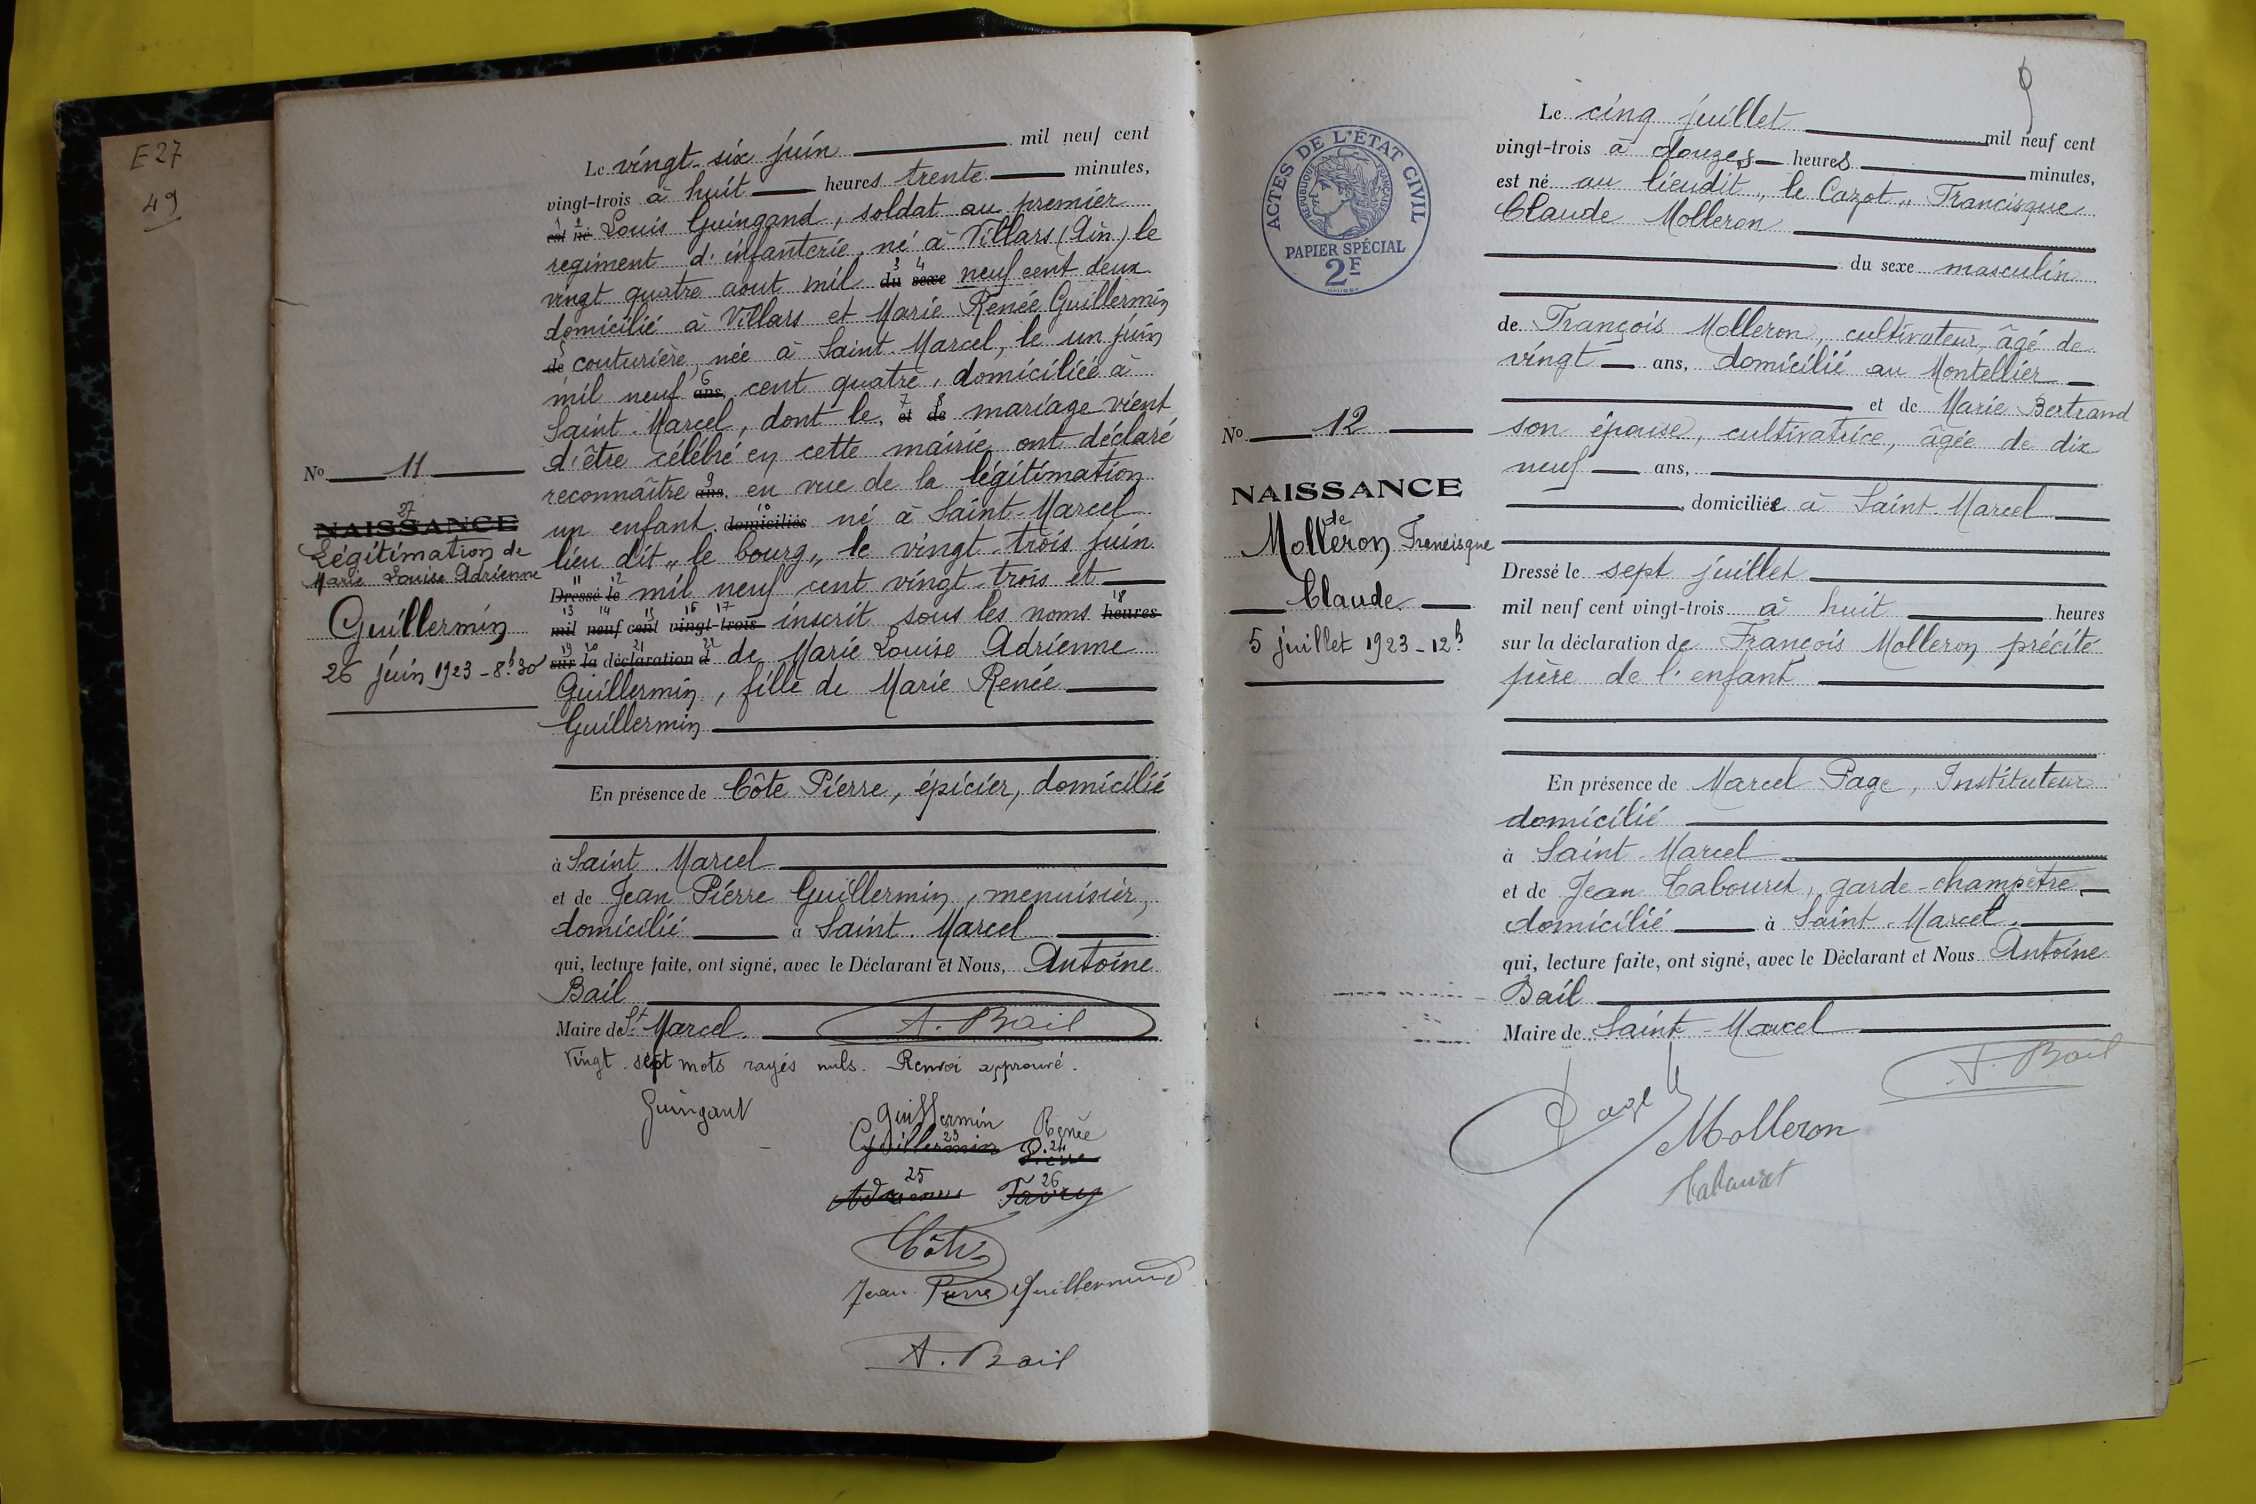 E 27
49
Le vingt-six juin mil neuf cent
vingt-trois à huit heures trente minutes,
1 2
est né Louis Guingand, soldat au premier
regiment d'infanterie, né à Villars (Ain) le
vingt quatre aout mil du 3 sexe 4 neuf cent deux
domicilié à Villars et Marie Renée Guillermin
5
de couturière, née à Saint-Marcel, le un juin
mil neuf ans, 6 cent quatre, domiciliée à
Saint-Marcel, dont le et 7 de 8 mariage vient
d'être célébré en cette mairie, ont déclaré
reconnaître ans, 9 en vue de la légitimation
un enfant domiciliés 10 né à Saint-Marcel
lieu dit „ le bourg „ le vingt-trois juin
11 12
Dressé le mil neuf cent vingt-trois et
13 14 15 16 17 18
mil neuf cent vingt-trois inscrit sous les noms heures
19 20 21 22
sur la déclaration d de Marie Louise Adrienne
Guillermin, fille de Marie Renée
Guillermin
No 11
27
NAISSANCE
Légitimation de
Marie Louise Adrienne
Guillermin
26 juin 1923 - 8h.30
En présence de Côte Pierre, épicier, domicilié
à Saint-Marcel
et de Jean Pierre Guillermin, menuisier,
domicilié à Saint-Marcel
qui, lecture faite, ont signé, avec le Déclarant et Nous, Antoine
Bail
Maire de St Marcel. A. Bail
Vingt-sept mots rayés nuls. Renvoi approuvé.
Guingant
Guillermin Renée
Guillermin 23 Pierre 24
25 26
Côte
Jean Pierre Guillermin
A. Bail
9
ACTES DE L'ÉTAT CIVIL
RÉPUBLIQUE FRANÇAISE
PAPIER SPÉCIAL
2F
Le cinq juillet mil neuf cent
vingt-trois à douze heures minutes,
est né au lieudit „ le Cazot „ Francisque
Claude Molleron
du sexe masculin
de François Molleron, cultivateur, âgé de
vingt ans, domicilié au Montellier
et de Marie Bertrand
son épouse, cultivatrice, âgée de dix
neuf ans,
domiciliés à Saint-Marcel
No 12
NAISSANCE
de
Molleron Francisque
Claude
5 juillet 1923 - 12h.
Dressé le sept juillet
mil neuf cent vingt-trois à huit heures
sur la déclaration de François Molleron précité
père de l'enfant
En présence de Marcel Page, Instituteur
domicilié
à Saint-Marcel
et de Jean Tabouret, garde-champetre
domicilié à Saint-Marcel
qui, lecture faite, ont signé, avec le Déclarant et Nous Antoine
Bail
Maire de Saint-Marcel
A. Bail
Page
Molleron
Tabouret